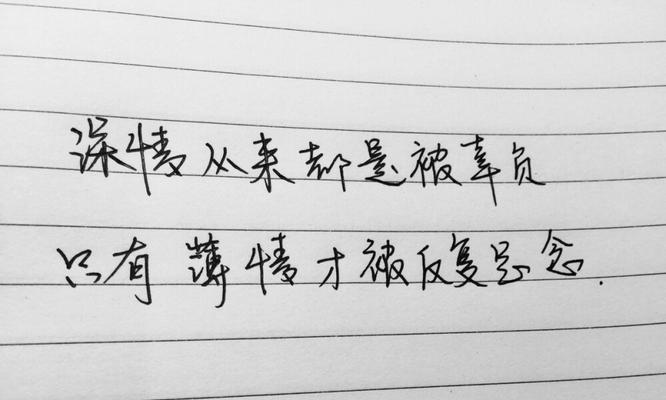 深情从来都是被辜负
只有薄情才被反复思念.